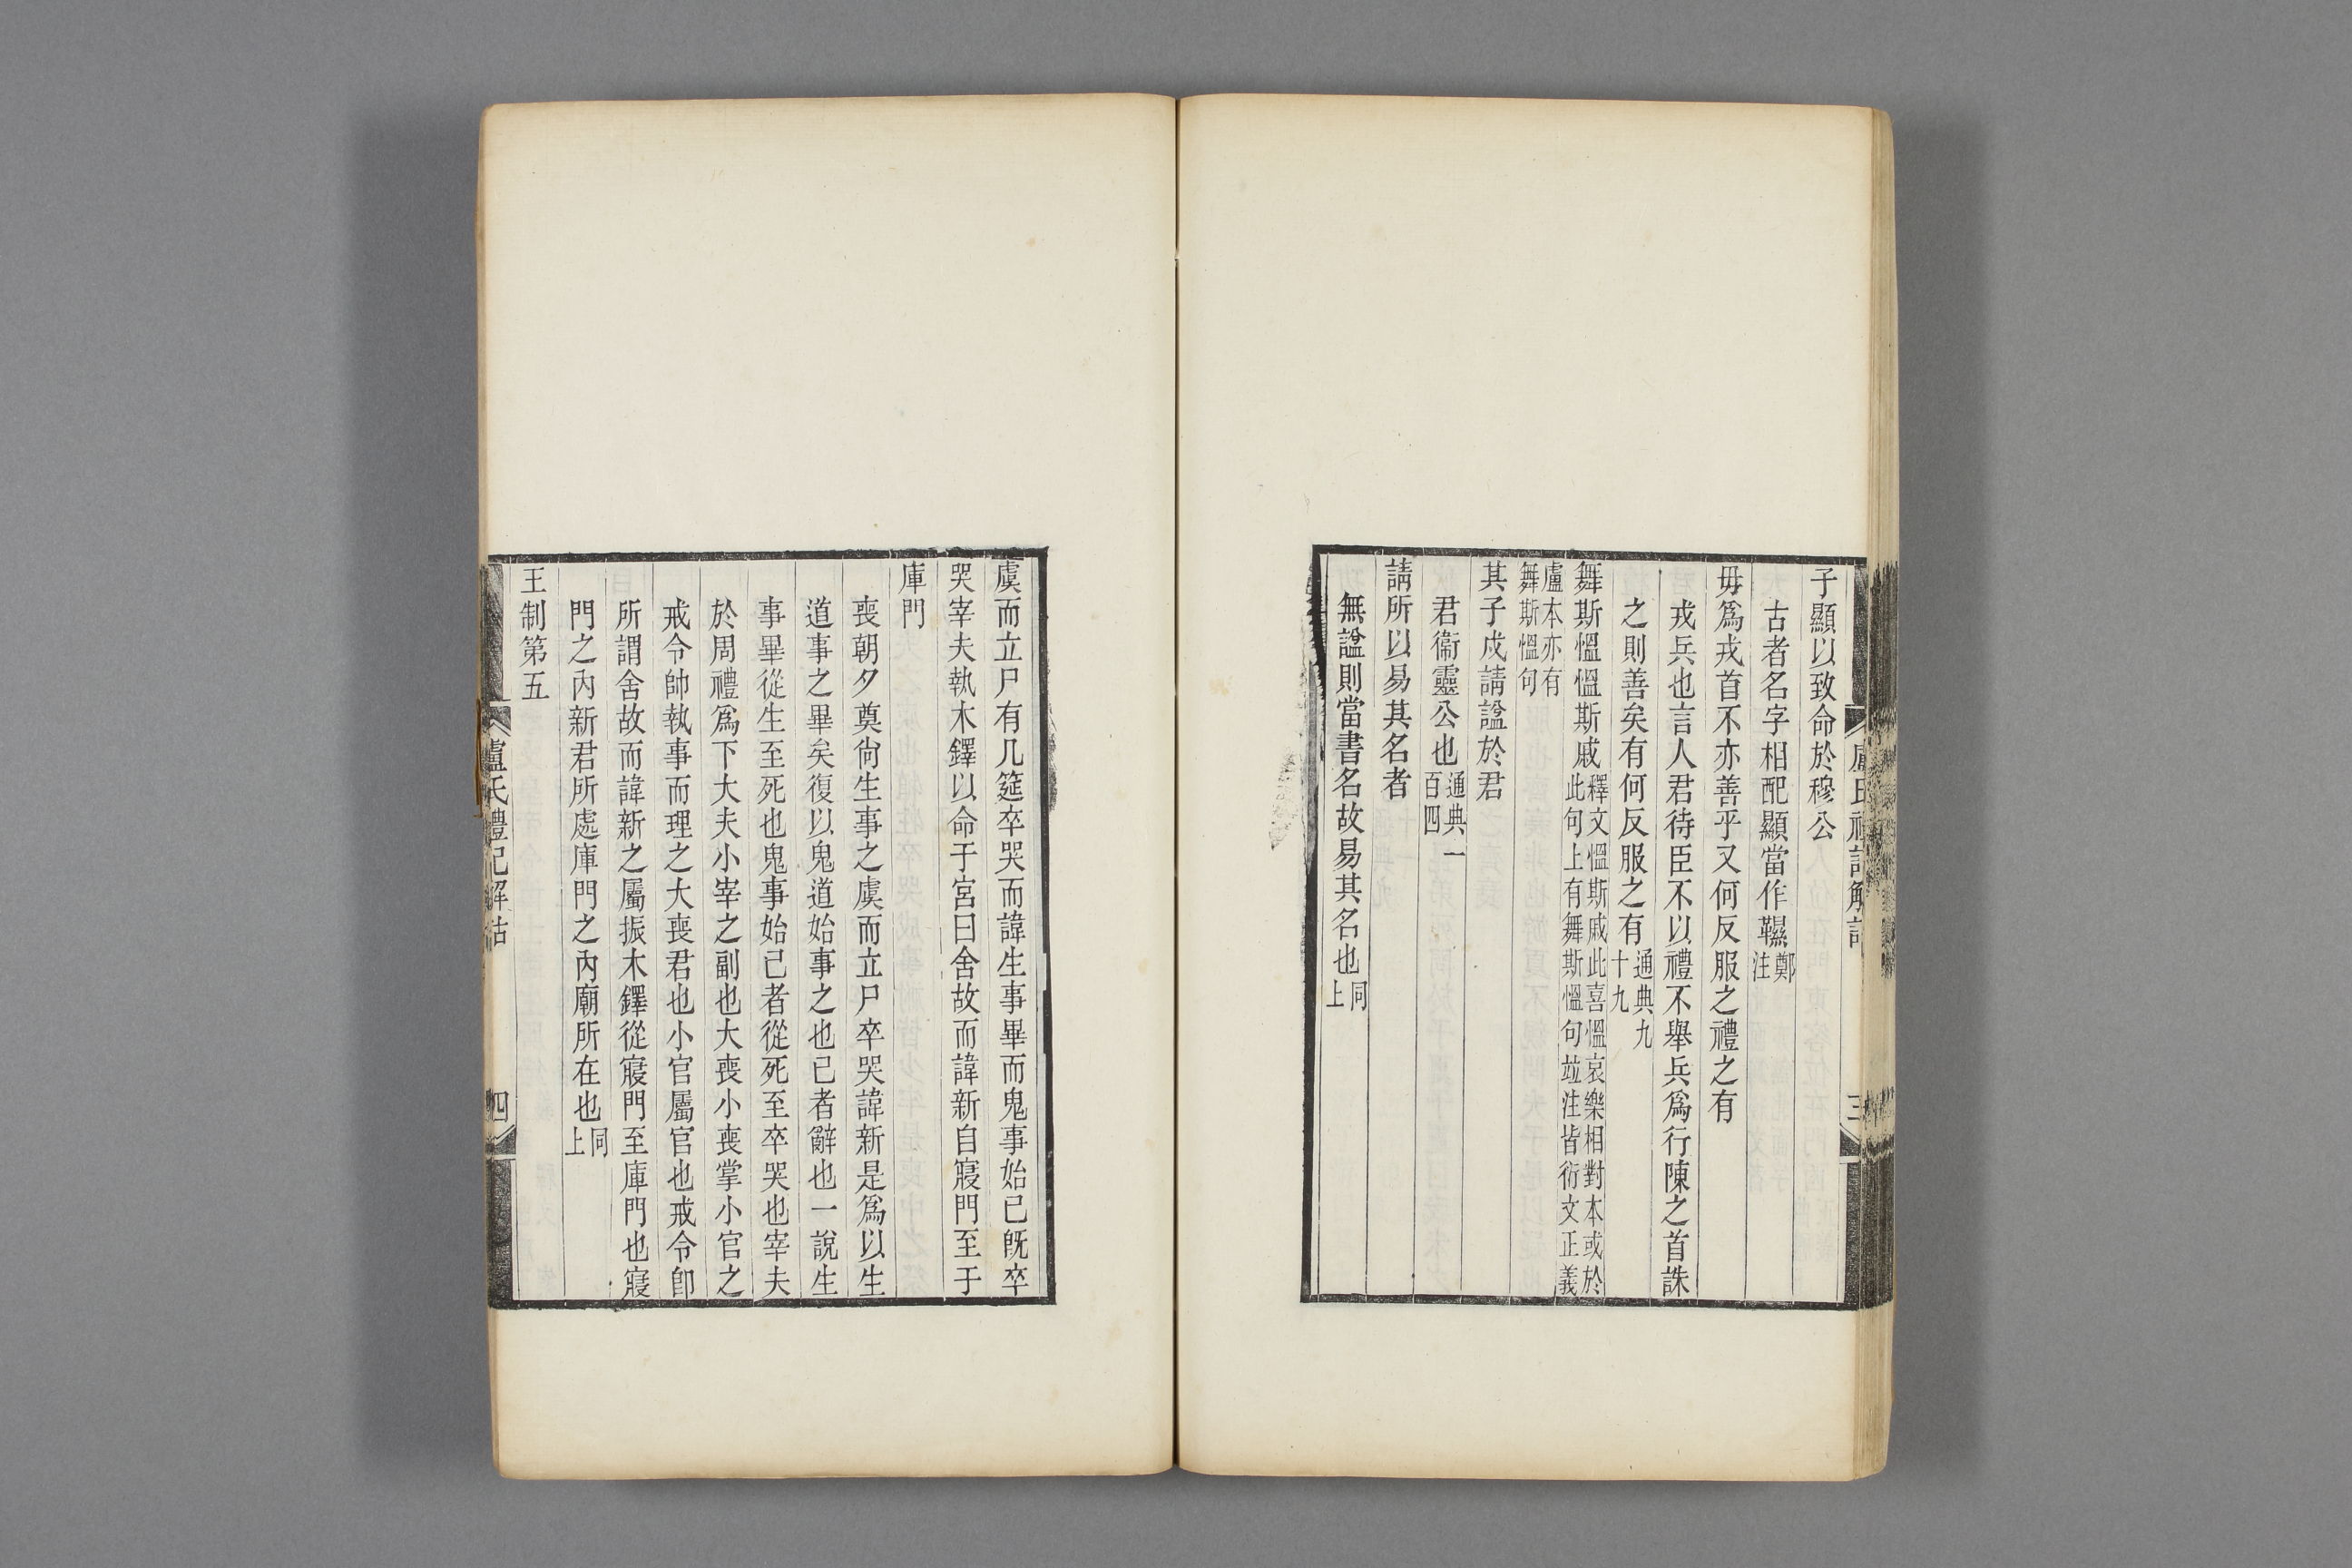 子顯以致命於穆公
古者名字相配顯當作韅鄭注
毋爲戎首不亦善乎又何反服之禮之有
戎兵也言人君待臣不以禮不舉兵爲行陳之首誅
之則善矣有何反服之有通典九十九
舞斯慍慍斯戚釋文慍斯戚此喜慍哀樂相對本或於此句上有舞斯慍句竝注皆衍文正義
盧本亦有舞斯慍句
其子戍請諡於君
君衞靈公也通典一百四
請所以易其名者
無諡則當書名故易其名也同上
三
虞而立尸有几筵卒哭而諱生事畢而鬼事始已旣卒
哭宰夫執木鐸以命于宮曰舍故而諱新自寢門至于
庫門
喪朝夕奠尙生事之虞而立尸卒哭諱新是爲以生
道事之畢矣復以鬼道始事之也已者辭也一說生
事畢從生至死也鬼事始已者從死至卒哭也宰夫
於周禮爲下大夫小宰之副也大喪小喪掌小官之
戒令帥執事而理之大喪君也小官屬官也戒令卽
所謂舍故而諱新之屬振木鐸從寢門至庫門也寢
門之內新君所處庫門之內廟所在也同上
王制第五
盧氏禮記解詁
四